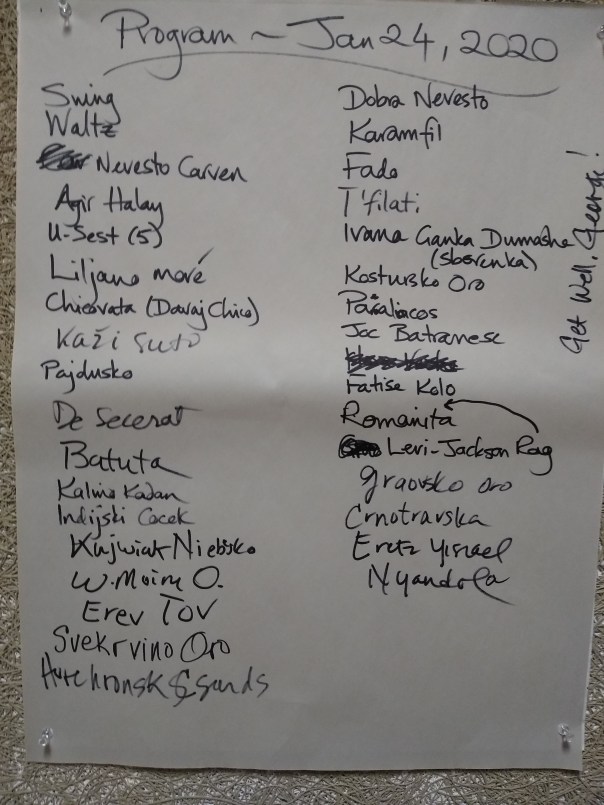 Program ~ Jan 24, 2020
Swing
Waltz
Nevesto Carven
Agir Halay
U-Sest (5)
Liljano Move
Chicovata (Davaj Chico)
Kaži
Pajdusko
De Secerat
Batuta
Kalino Kadan
Indijski Cocek
Kujwiak Niebisko
W. Moim O.
Erev Tov
Svekrvino Oro
Dobra Nevesto
Karamfil
Fado
T'filati
Ivana Ganka Dumashe
(sborenka)
Kostursko Oro
Joc Batranesc
Fatise Kolo
Romanita
Levi-Jackson Rag
Graovsko oro
Crnotravska
Eretz Yisrael
Nyandola
Get Well, George!